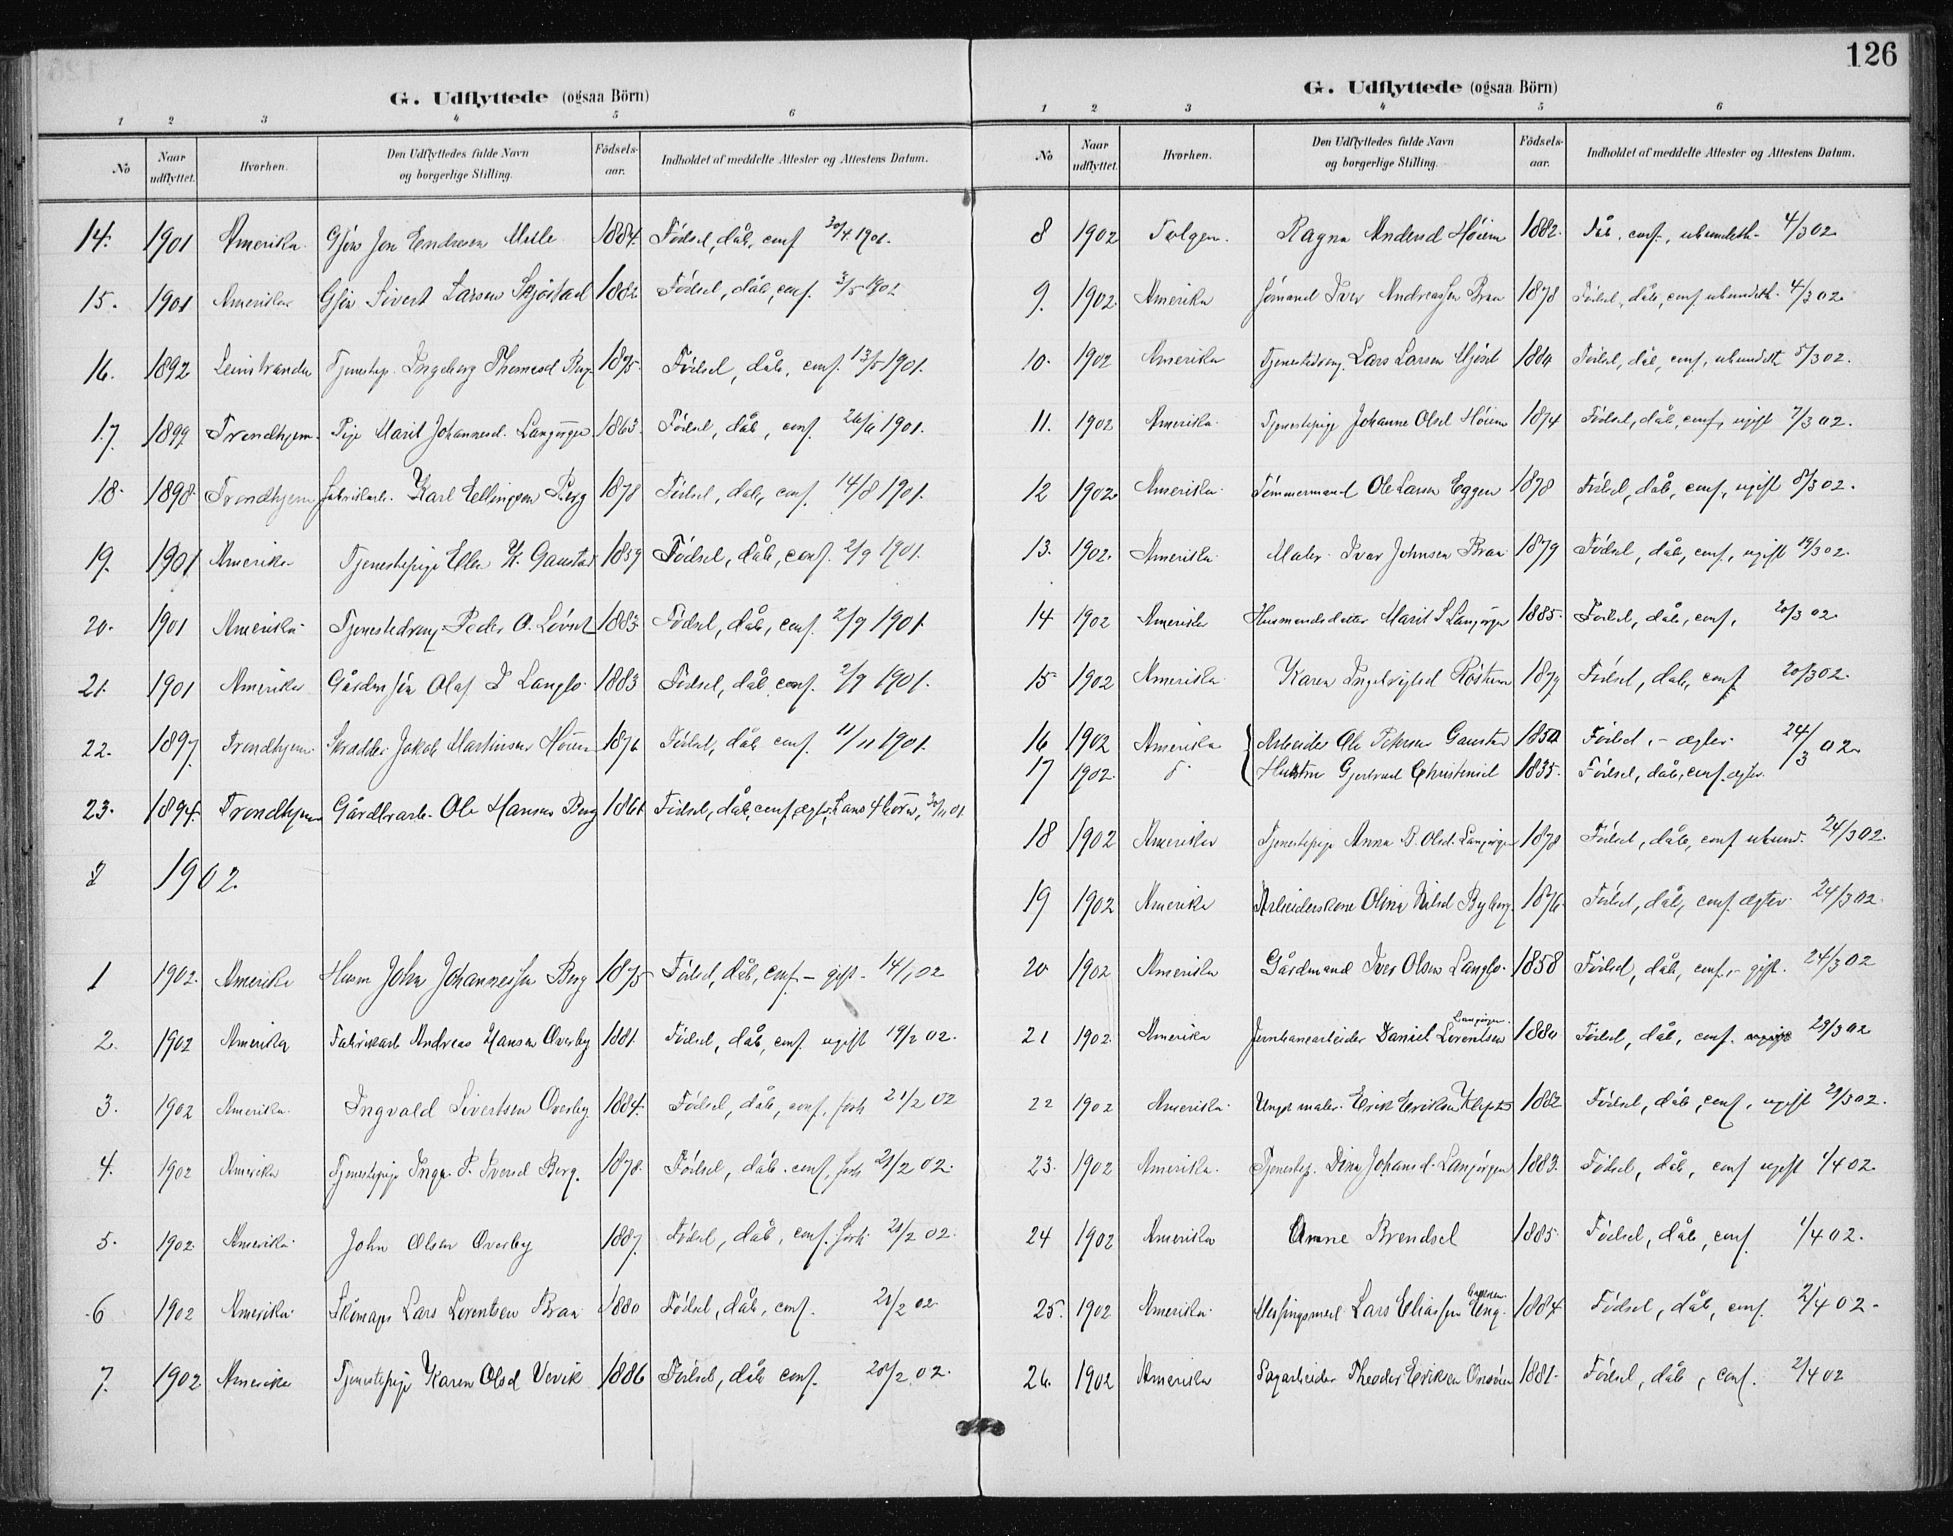 126
G. Udflyttede (ogsaa Börn)
1 2 3 4 5 6
No Naar udflyttet. Hvorhen. Den Udflyttedes fulde Navn og borgerlige Stilling. Födsels-aar. Indholdet af meddelte Attester og Attestens Datum.
14. 1901 Amerika Gsön Jon Endresen Melle 1884. Födsel, dåb, conf 30/4 1901.
15. 1901 Amerika Gsön Sivert Larsen Skjöstad 1882 Födsel, dåb, conf. 3/5 1901
16. 1892 Leinstranden Tjenestep. Ingeborg Thomasd Berg 1875 Födsel, dåb, conf. 13/5 1901.
17. 1899 Trondhjem. Pige Marit Johannesd. Langörgen 1863. Födsel, dåb, conf. 26/6 1901.
18. 1898. Trondhjem Fabrikarb. Karl Ellingsen Berg 1878 Födsel, dåb, conf. 14/8 1901.
19. 1901 Amerika Tjenestepige Ellen K. Gaustad 1859 Födsel, dåb, conf. 2/9 1901.
20. 1901 Amerika Tjenestedreng Peder O. Lövset 1883. Födsel, dåb, conf. 2/9 1901.
21. 1901 Amerika Gårdm sön Olaf I Langlo 1883 Födsel, dåb, conf. 2/9 1901.
22. 1897. Trondhjem. Skrædder Jakob Martinsen Höiem 1876 Födsel, dåb conf. 11/11 1901.
23. 1894. Trondhjem Gårdbrarb. Ole Hansen Berg 1861. Födsel, dåb, conf, ægtev, hans 4 börn, 30/11 01
1902.
1 1902. Amerika Husm John Johannessen Berg 1875 Födsel, dåb, conf. - gift - 14/1 02
2. 1902 Amerika Fabrikarb Andreas Hansen Overby 1881. Födsel, dåb, conf. ugift 19/2 02.
3. 1902 Amerika. Ingvald Sivertsen Overby 1884. Födsel, dåb, conf, 21/2 02
4. 1902 Amerika Tjenestepige Inga P. Iversd Berg. 1878. Födsel, dåb. conf, 21/2 02.
5. 1902. Amerika. John Olsen Overby 1887. Födsel, dåb, conf. 21/2 02.
6 1902 Amerika. Skomager Lars Lorentsen Braa 1880 Födsel, dåb, conf. 21/2 02.
7. 1902 Amerika Tjenestepige Karen Olsd Vevik 1886 Födsel, dåb conf. 28/2 02.
G. Udflyttede (ogsaa Börn)
1 2 3 4 5 6
No Naar udflyttet. Hvorhen. Den Udflyttedes fulde Navn og borgerlige Stilling. Födsels-aar. Indholdet af meddelte Attester og Attestens Datum.
8 1902 Tolgen. Ragna Andersd Höiem 1882. Dåb, conf., ubundeth. 4/3 02.
9. 1902 Amerika Sömand Iver Andreassen Braa 1878 Födsel, dåb, conf ubundeth. 4/3 02.
10. 1902 Amerika Tjenestedreng. Lars Larsen Mjöset Födsel, dåb, conf, ubundeth 5/3 02.
11. 1902 Amerika. Tjenestepige Johanne Olsd Höiem 1874 Födsel, dåb, conf, ugift 7/3 02.
12 1902. Amerika. Tömmermand Ole Larsen Eggen 1878 Födsel, dåb, conf, ugift 8/3 02.
13. 1902. Amerika. Maler Ivar Johnsen Braa 1879 Födsel, dåb, conf, ugift 19/3 02.
14 1902 Amerika Husmandsdatter Marit S Langörgen 1885. Födsel, dåb, conf, 20/3 02.
15 1902 Amerika. Karen Ingebrigtsd Röstum 1879 Födsel, dåb, conf 20/3 02.
16 1902 Amerika Arbeider Ole Petersen Gaustad 1850 Födsel, - ægtev. 24/3 02.
17 1902. Hustru Gjertrud Christensd 1835. Födsel, dåb, conf. ægtev.
18 1902 Amerika Tjenestepige Anna B. Olsd. Langörgen 1878 Födsel, dåb, conf ubund. 24/3 02.
19 1902 Amerika Arbeiderskone Olina Nilsd Byberg. 1876. Födsel, dåb, conf. ægtev. 24/3 02.
20 1902 Amerika Gårdmand Iver Olsen Langlo. 1858 Födsel, dåb, conf. - gift. 24/3 02
21 1902. Amerika Jernbanearbeider Daniel Lorentsen Langörgen. 1880 Födsel, dåb, conf. 29/3 02
22 1902 Amerika. Ungd maler. Erik Eriksen Klefstad 1882 Födsel, dåb, conf, ugift 29/3 02.
23. 1902 Amerika. Tjenestep. Dina Johansd. Langörgen 1883. Födsel, dåb, conf ugift 1/4 02.
24 1902 Amerika Anne Brendsel 1885 Födsel, dåb, conf. 1/4 02.
25. 1902 Amerika. Messingsmed. Lars Eliassen Eng. 1884. Födsel, dåb, conf. 2/4 02.
26. 1902 Amerika Sagarbeider Theodor Eriksen Onsöien 1881. Födsel, dåb, conf. 2/4 02